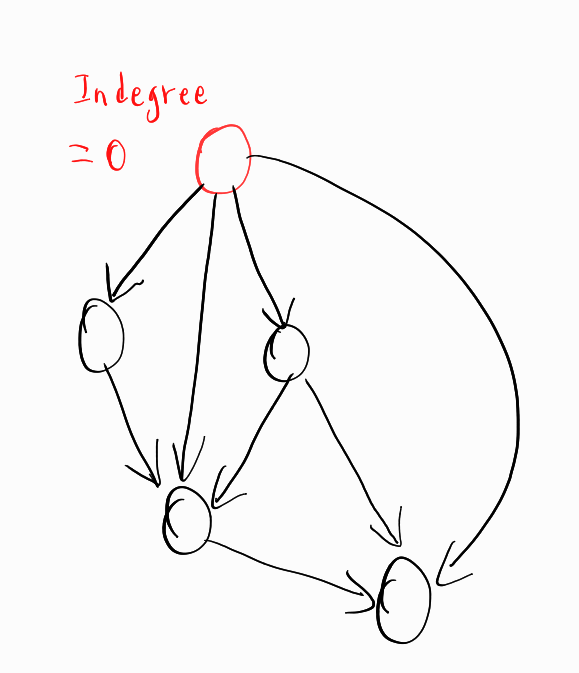 Indegree
= 0